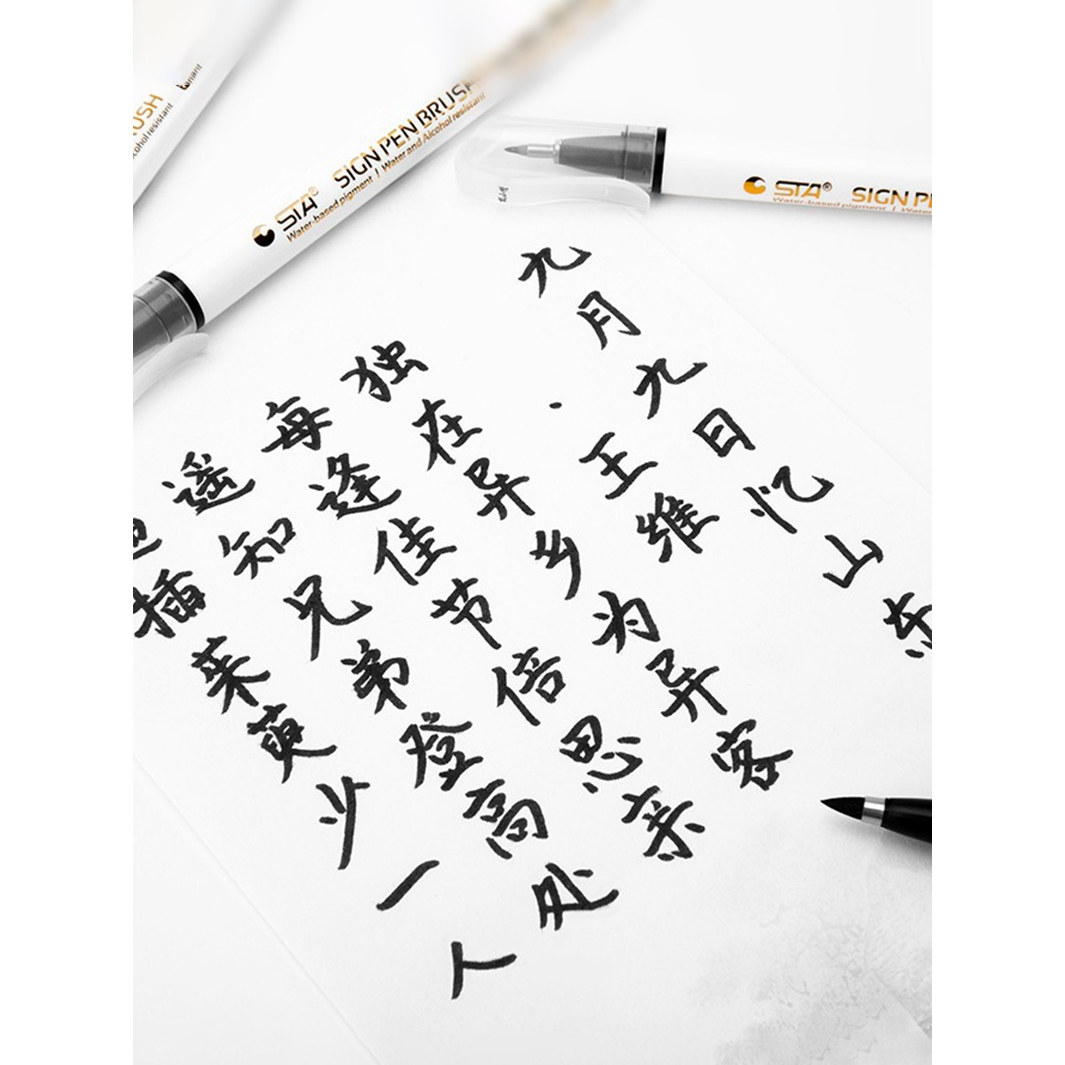 STA® SIGN PEN BRUSH
Water-based pigment | Water and Alcohol resistant
STA® SIGN
Water-based pigment | Wate
九月九日忆山东
·王维
独在异乡为异客
每逢佳节倍思亲
遥知兄弟登高处
插茱萸少一人